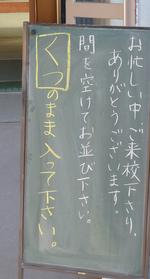 お忙しい中、ご来校下さり、
ありがとうございます。
間を空けてお並び下さい。
くつのまま入って下さい。